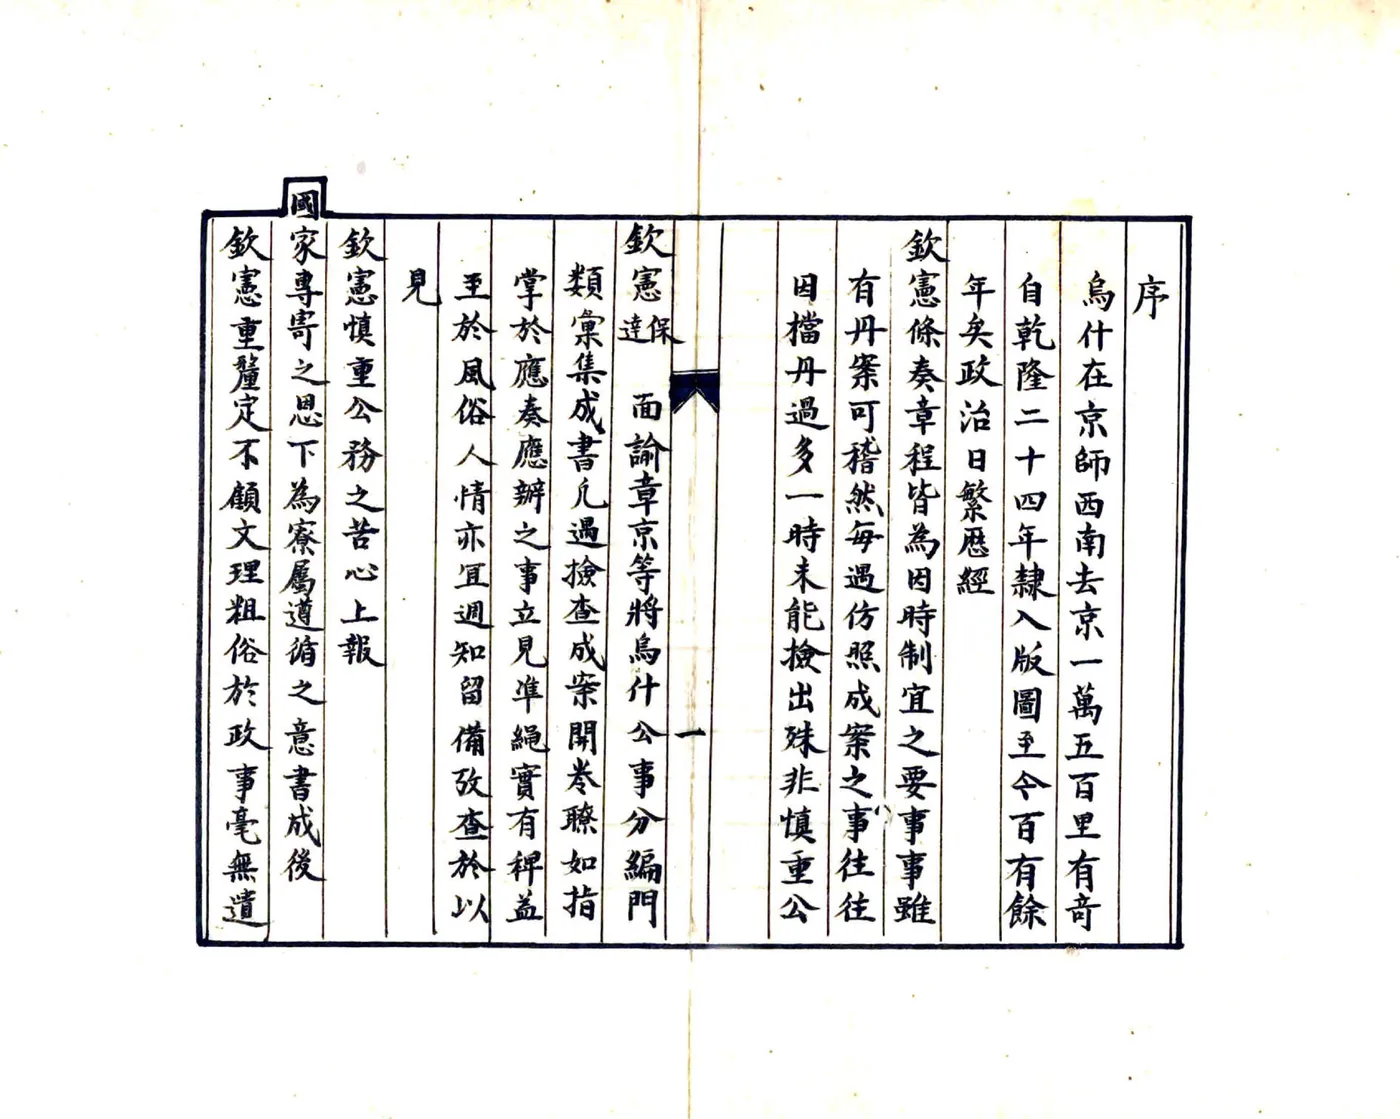 序
烏什在京師西南去京一萬五百里有奇
自乾隆二十四年隸入版圖至今百有餘
年矣政治日繁歷經
欽憲條奏章程皆為因時制宜之要事事雖
有丹案可稽然每遇仿照成案之事往往
因檔丹過多一時未能撿出殊非慎重公
一
欽憲保達 面諭章京等將烏什公事分編門
類彙集成書凡遇撿查成案開卷瞭如指
掌於應奏應辦之事立見準繩實有稗益
至於風俗人情亦宜週知留備攷查於以
見
欽憲慎重公務之苦心上報
國家專寄之恩下為寮屬遵循之意書成後
欽憲重釐定不顧文理粗俗於政事毫無遺